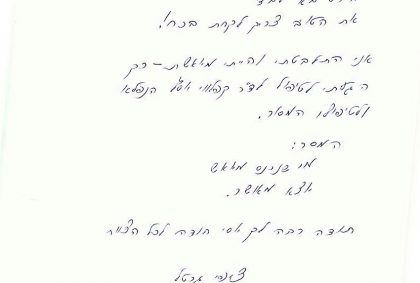 את הטוב צריך לקחת בכח!
אני התלבטתי והייתי מיואשת – רק
הגעתי לטיפול לד"ר אסי הנפלא
ולטיפולו המסור.
המסר:
מי שנכנס מיואש
יוצא מאושר.
תודה רבה לך אסי תודה לכל הצוות
ציפי